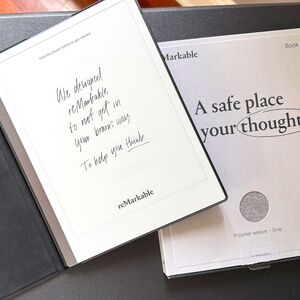 Hold the power button to get started
We designed
reMarkable
to not get in
your brain's way
To help you think
reMarkable
reMarkable
Book
A safe place
your thought
Polymer weave – Gray